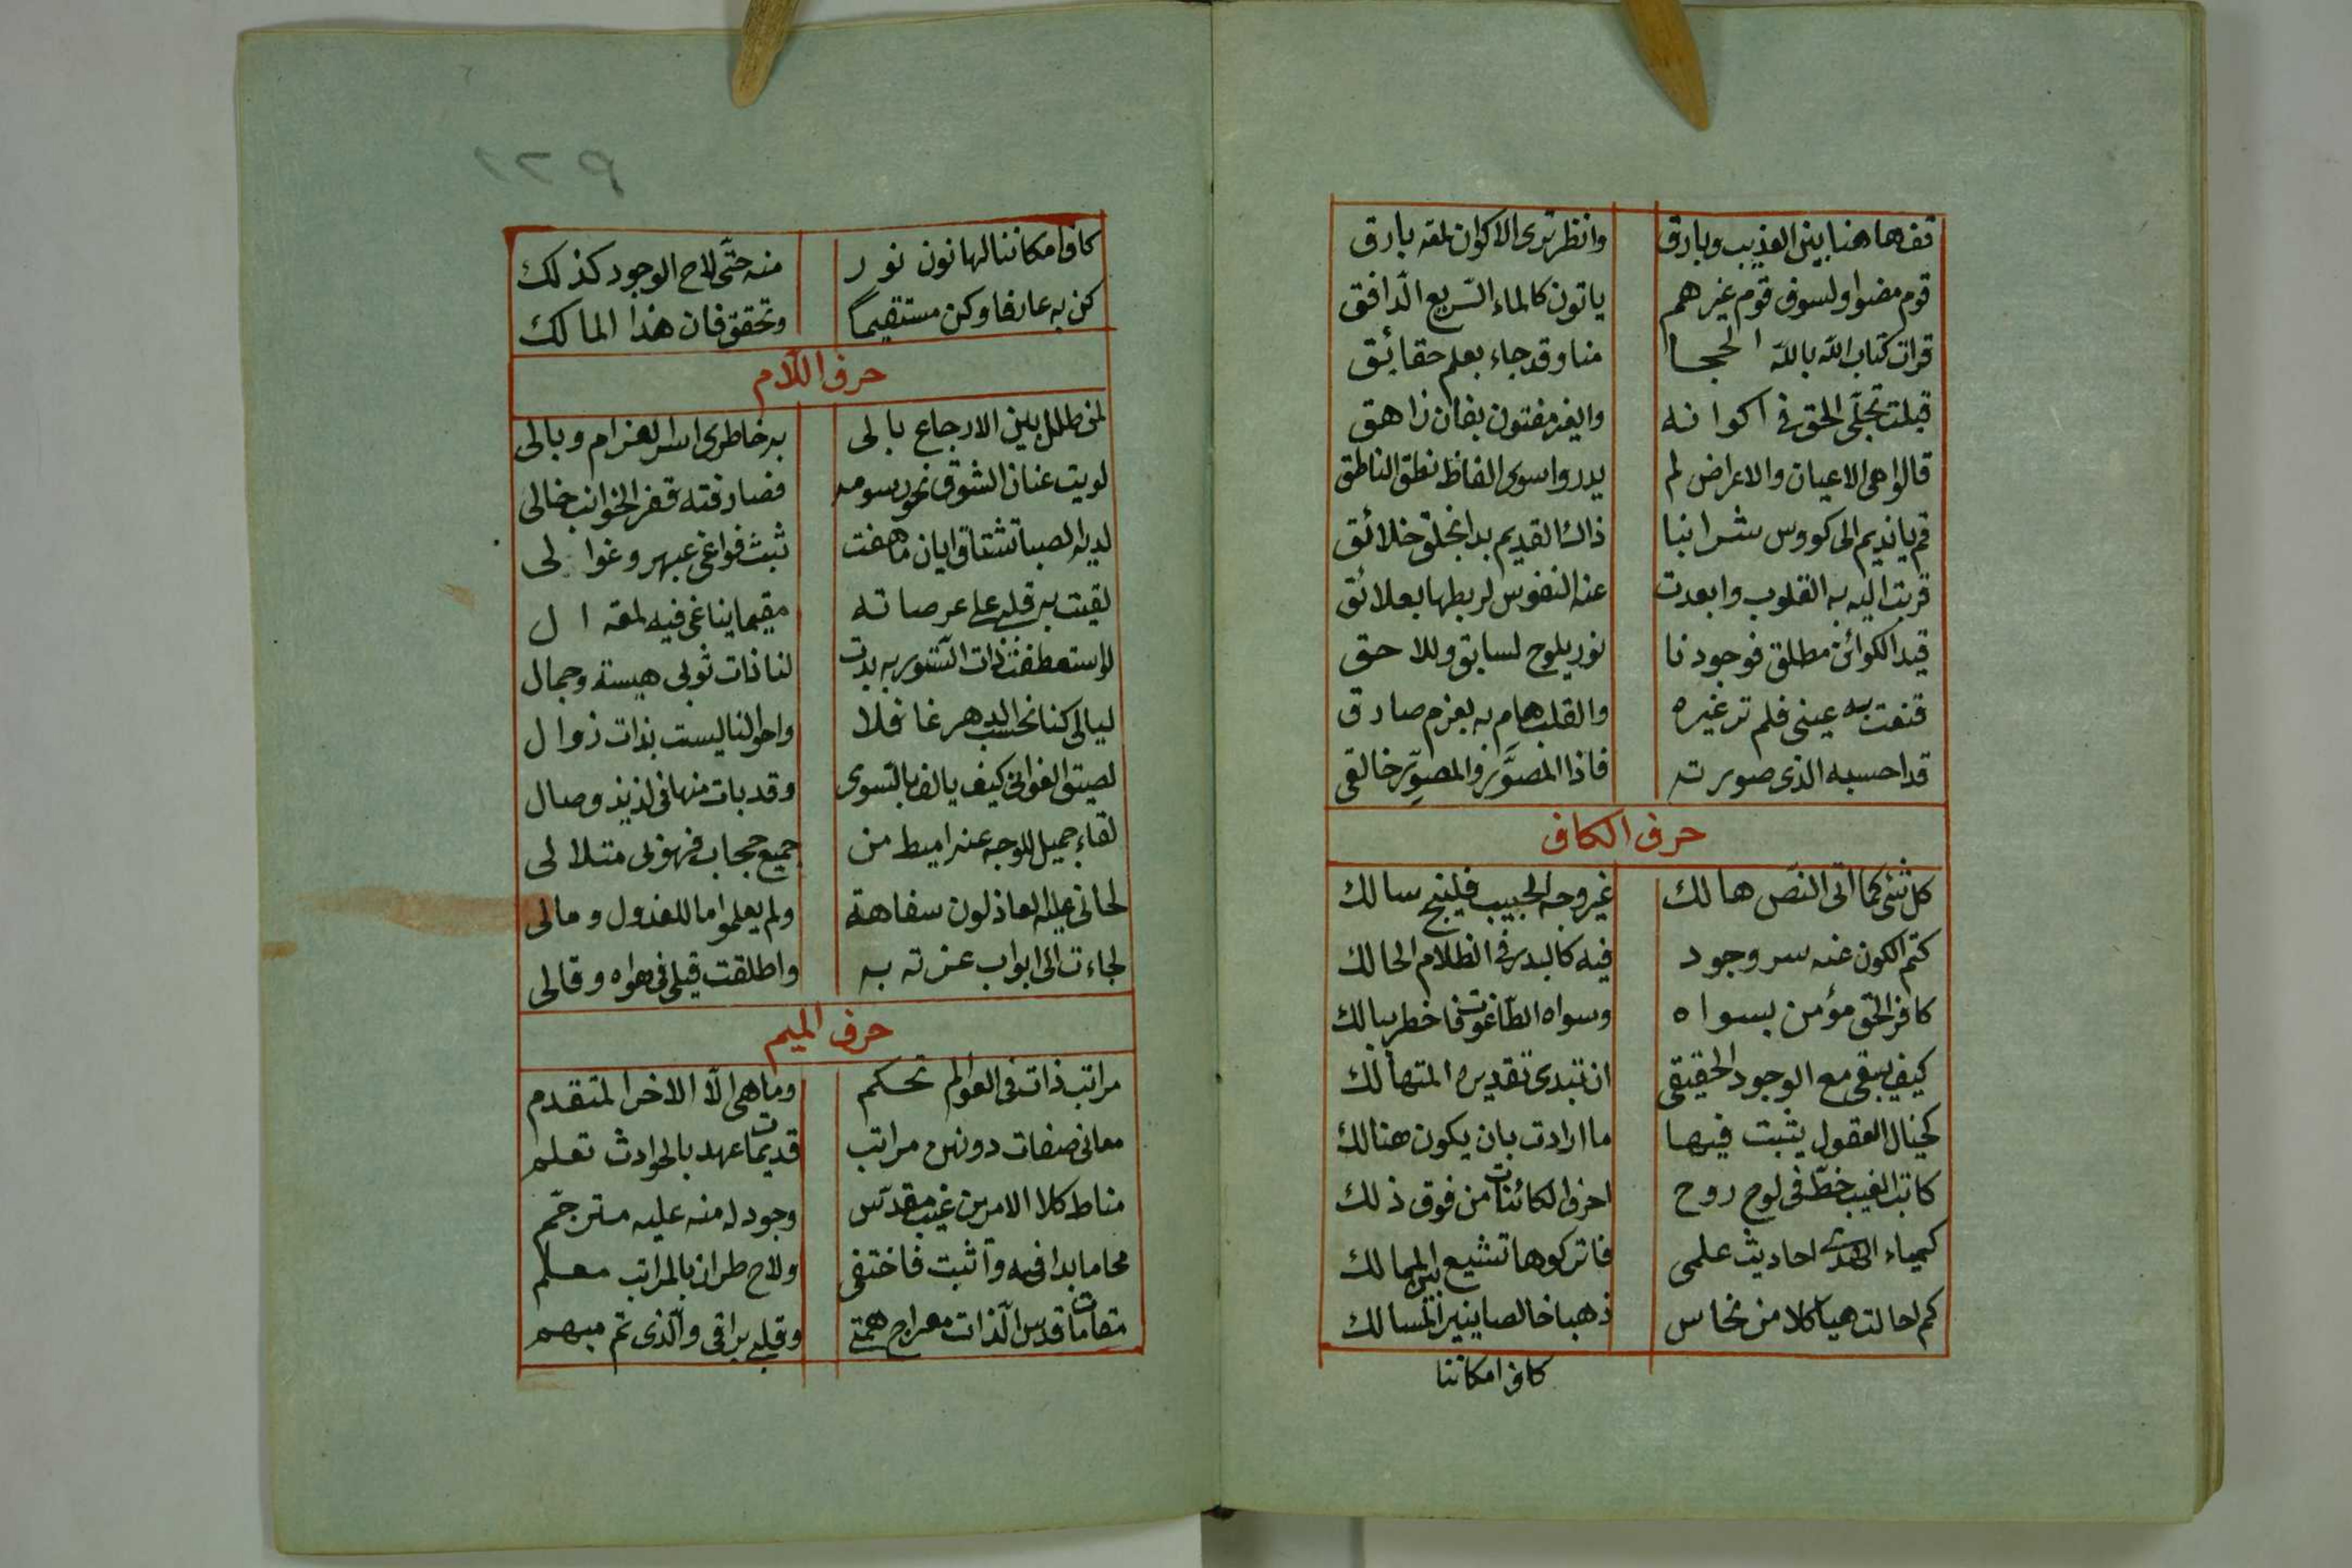 قف هاهنا بين العذيب وبارق وانظر ترى الاكوان لمقه بارق
قوم مضوا ولسوف قوم غيرهم ياتون كالماء السّريع الدّافق
قرات كتاب الله بالله الحجا منا وقد جاء بعلم حقائق
قبلت تجلّى الحق فى اكوانه والغير مفتون بفان زاهق
قالوا هى الاعيان والاعراض لم يدروا سوى الفاظ نطق الناطق
قم يانديم الى كووس شرابنا ذاك القديم بدا بخلق خلائق
قربت اليه به القلوب وابعدت عنه النفوس لربطها بعلائق
قيد الكوائن مطلق فوجودنا نور يلوح لسابق وللاحق
قنعت به عينى فلم تر غيره والقلب هام به بعزم صادق
قد احسبه الذى صورته فاذا المصوَّر والمصوِّر خالقى
حرف الكاف
كل شئى كما اتى النصّ هالك غير وجه الحبيب فلينج سالك
كتم الكون عنه سر وجود فيه كالبدر فى الظلام الحالك
كافر الحق مؤمن بسواه وسواه الطاغوت فاخطر ببالك
كيف يبقى مع الوجود الحقيقى ان تبدى تقديره المتهالك
كخيال العقول يثبت فيها ما ارادت بان يكون هنالك
كاتب الغيب خطّ فى لوح روح احرف الكائنات من فوق ذلك
كيمياء الهدى احاديث علمى فاتركوها تشيع بين الممالك
كم احالت هياكلا من نحاس ذهبا خالصا ينير المسالك
كاف امكاننا
كاف امكاننا لها نون نور منه حتّى لاح الوجود كذلك
كن به عارفا وكن مستقيما وتحقق فان هذا المالك
حرف اللام
لمن طلل بين الاجارع بالى به خاطرى اسر الغرام وبالى
لويت عنان الشوق نحو رسومه فصادفته قفر الجوانب خالى
لديه الصبا تشتاق ايان ما هفت تبث فواغى عبهر وغوالى
لقيت به قلبى على عرصاته مقيما يناغى فيه لمقه ال
لو استعطفت ذات التستور به بدت لنا ذات ثوبى هيبة وجمال
ليالى كنا نحسب الدهر غافلا واحوالنا ليست بذات زوال
لصيق الغوانى كيف يالف بالسوى وقد بات منها فى لذيذ وصال
لقاء جميل الوجه عنه اميط من جميع حجاب فهو لى متلالى
لحانى عليه العاذلون سفاهة ولم يعلموا ما للعذول ومالى
لجاءت الى ابواب عزته به واطلقت قيلى فى هواه وقالى
حرف الميم
مراتب ذات فى العوالم تحكم وما هى الّا الاخر المتقدم
معانى صفات دونهن مراتب قديمات عهد بالحوادث تعلم
مناط كلا الامرين غيب مقدّس وجود له منه عليه مترجّم
محا ما بدا فيه واثبت فاختفى ولاح طراز بالمراتب معلم
مقامات قدس الذات معراج همتى وقلبى براقى والّذى ثم مبهم